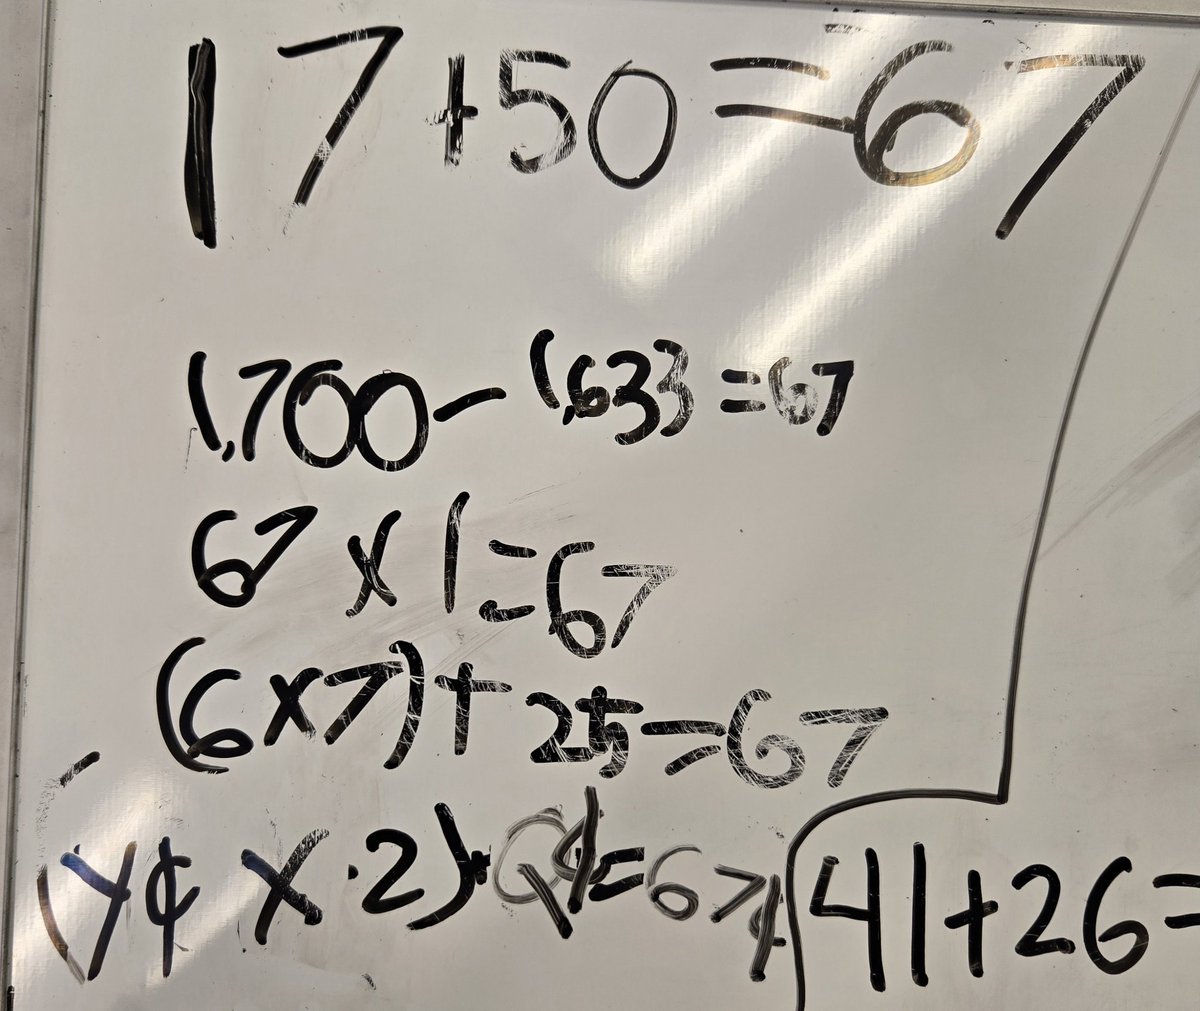 17+50=67
1,700-1,633=67
67x1=67
(6x7)+25=67
x .2) =67
41+26=